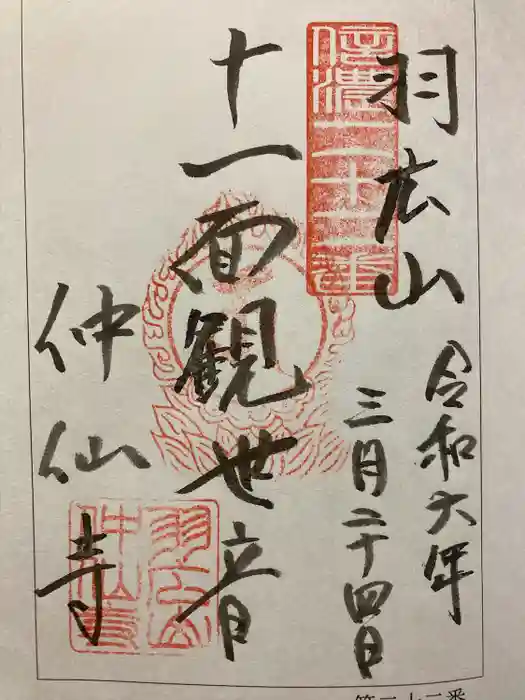 羽広山
信濃二十二番
令和六年
三月二十四日
十一面観世音
仲仙寺
羽広山
仲仙寺
第二十二番